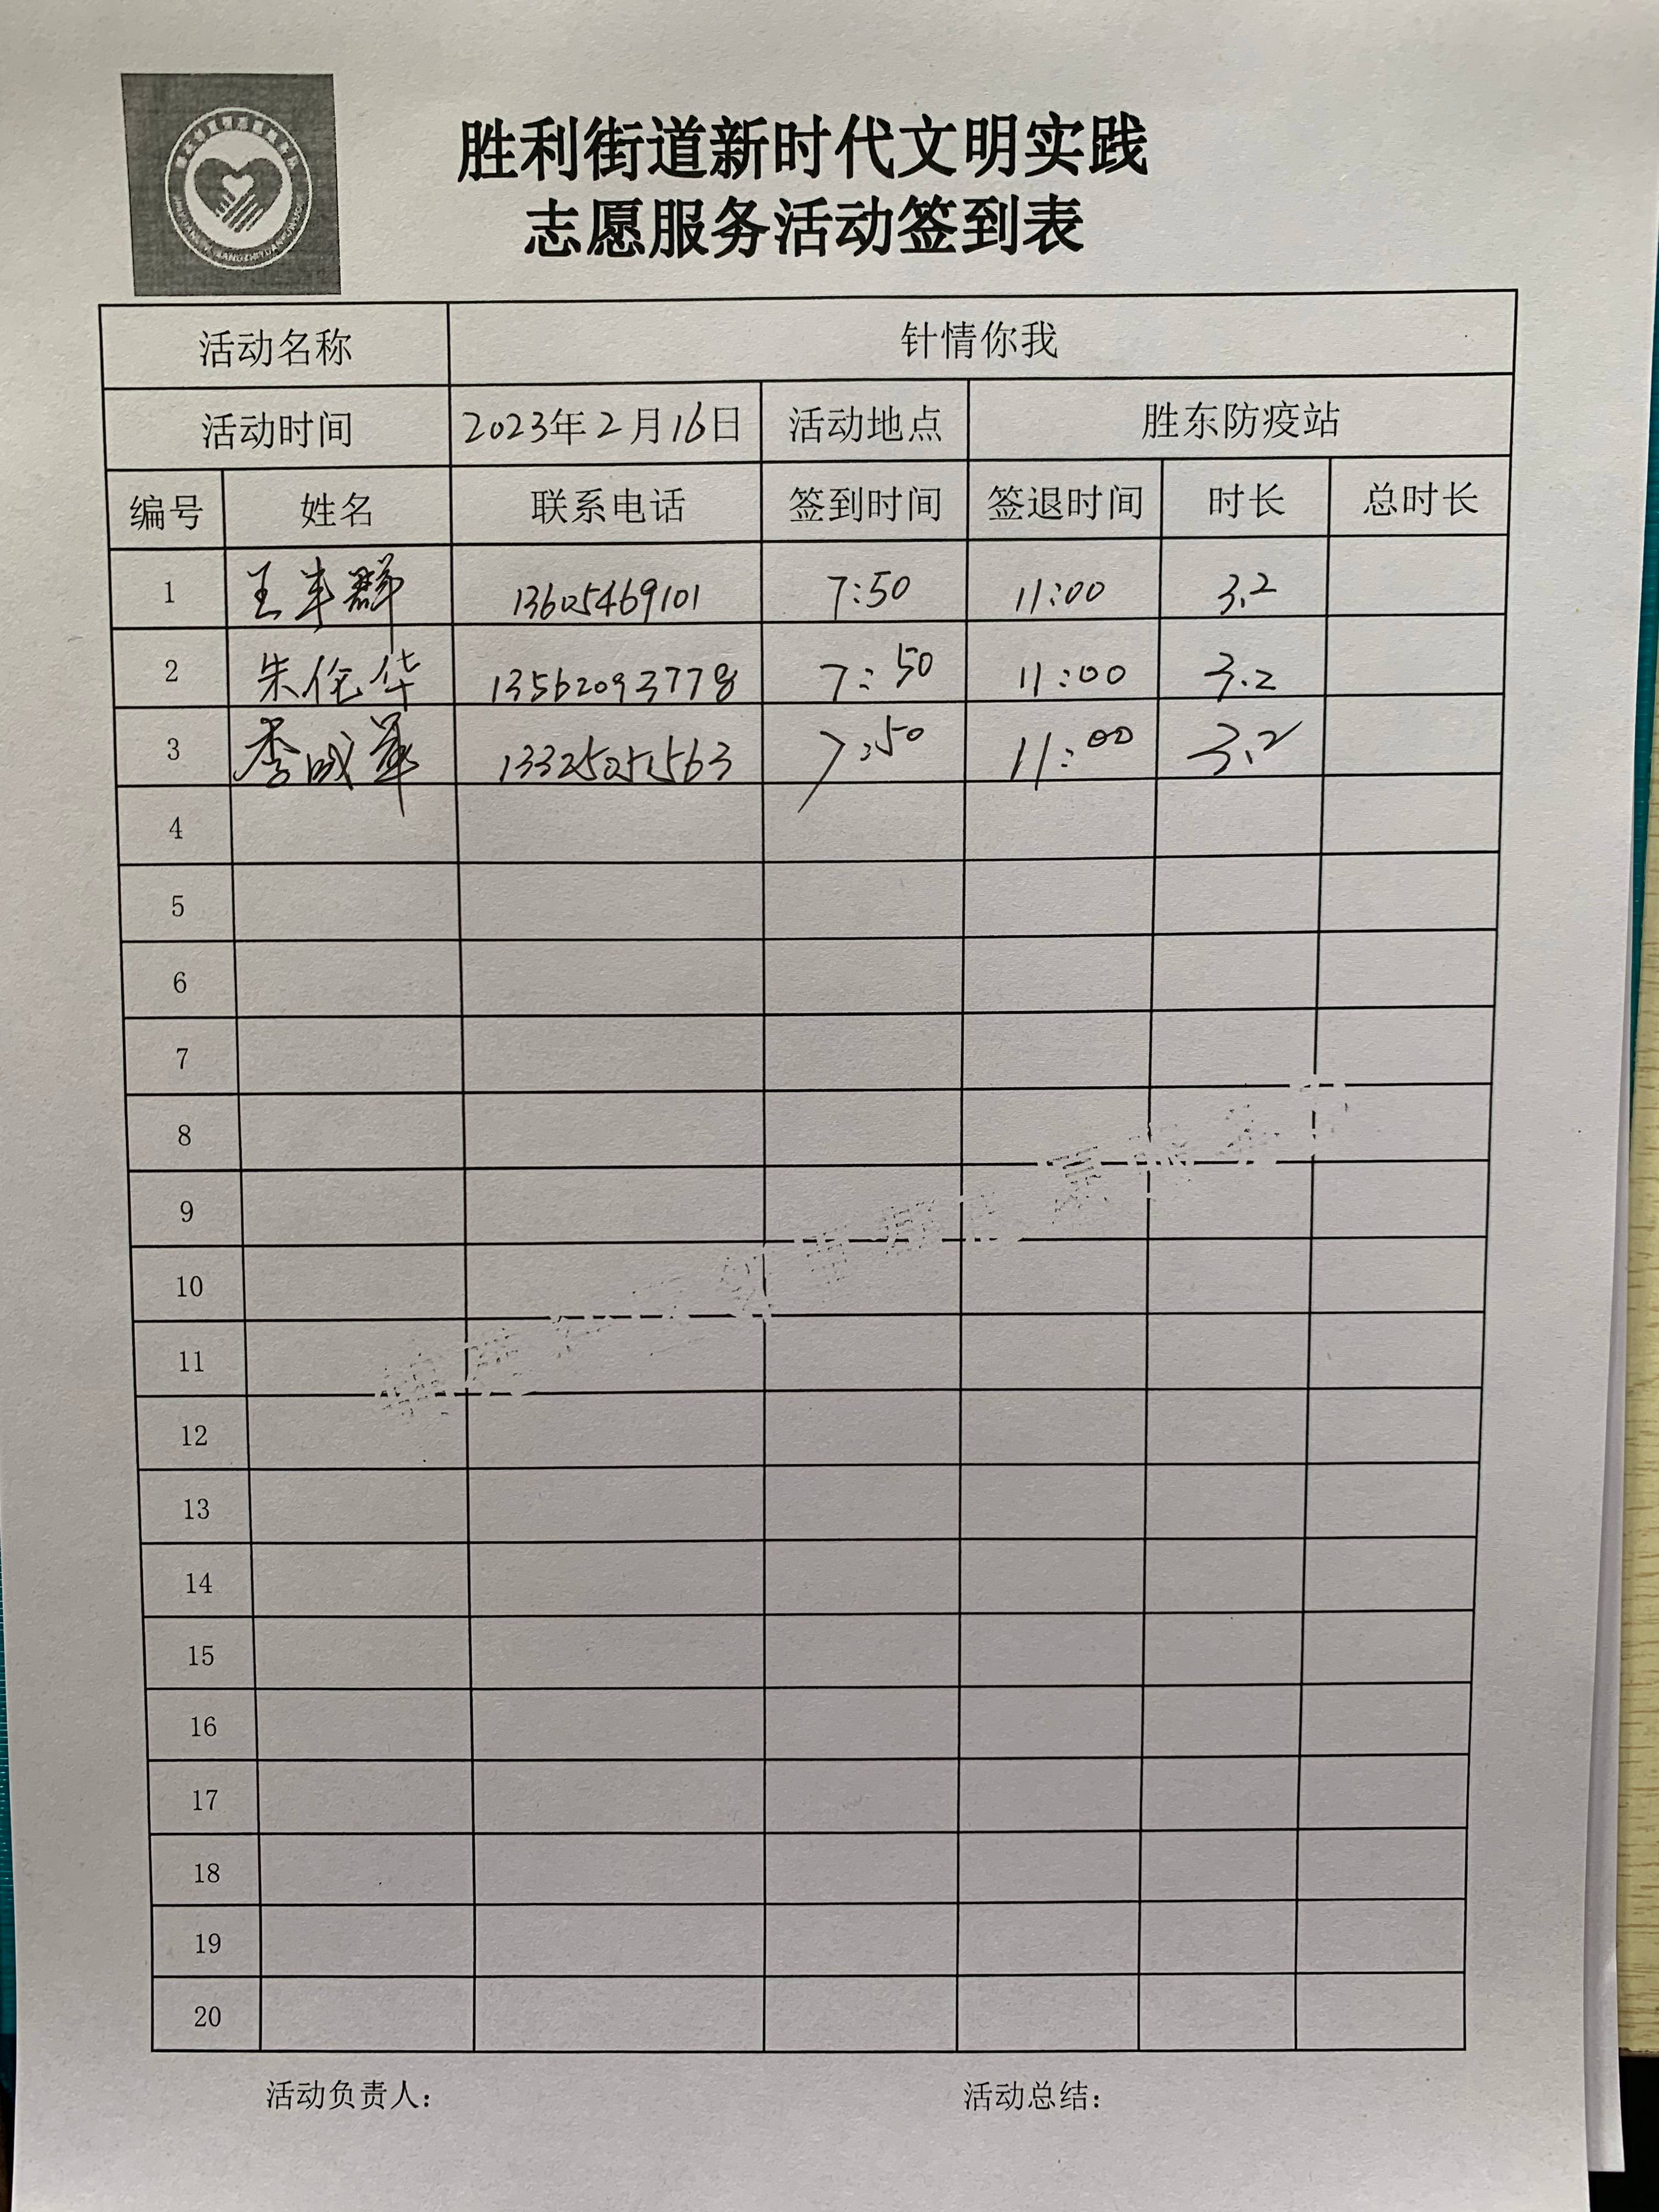 胜利街道新时代文明实践
志愿服务活动签到表
活动名称 针情你我
活动时间 2023年2月16日 活动地点 胜东防疫站
编号 姓名 联系电话 签到时间 签退时间 时长 总时长
1 王丰群 13605469101 7:50 11:00 3.2
2 朱佗华 13562093778 7:50 11:00 3.2
3 李成军 13325051563 7:50 11:00 3.2
4
5
6
7
8
9
10
11
12
13
14
15
16
17
18
19
20
活动负责人： 活动总结：